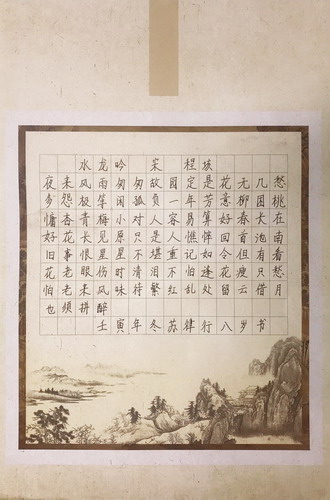 愁桃在南看愁月
几困长池有只借书
无柳春首但瘦云岁
花意好回令花留八
是芳算伴如逢处行
程定年易憔记怕乱律
国一容人重不红苏
宋故负人是堪泪繁冬
匆孤对只不清待年
吟匆闲小原星时味寅
龙雨笔梅见星伤风醉壬
水风极青长恨眼柔拼
来怨杏花事老老频
夜多慵好旧花怕也